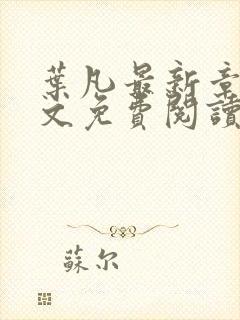 葉凡最新章
文免費閱讀
蘇尔